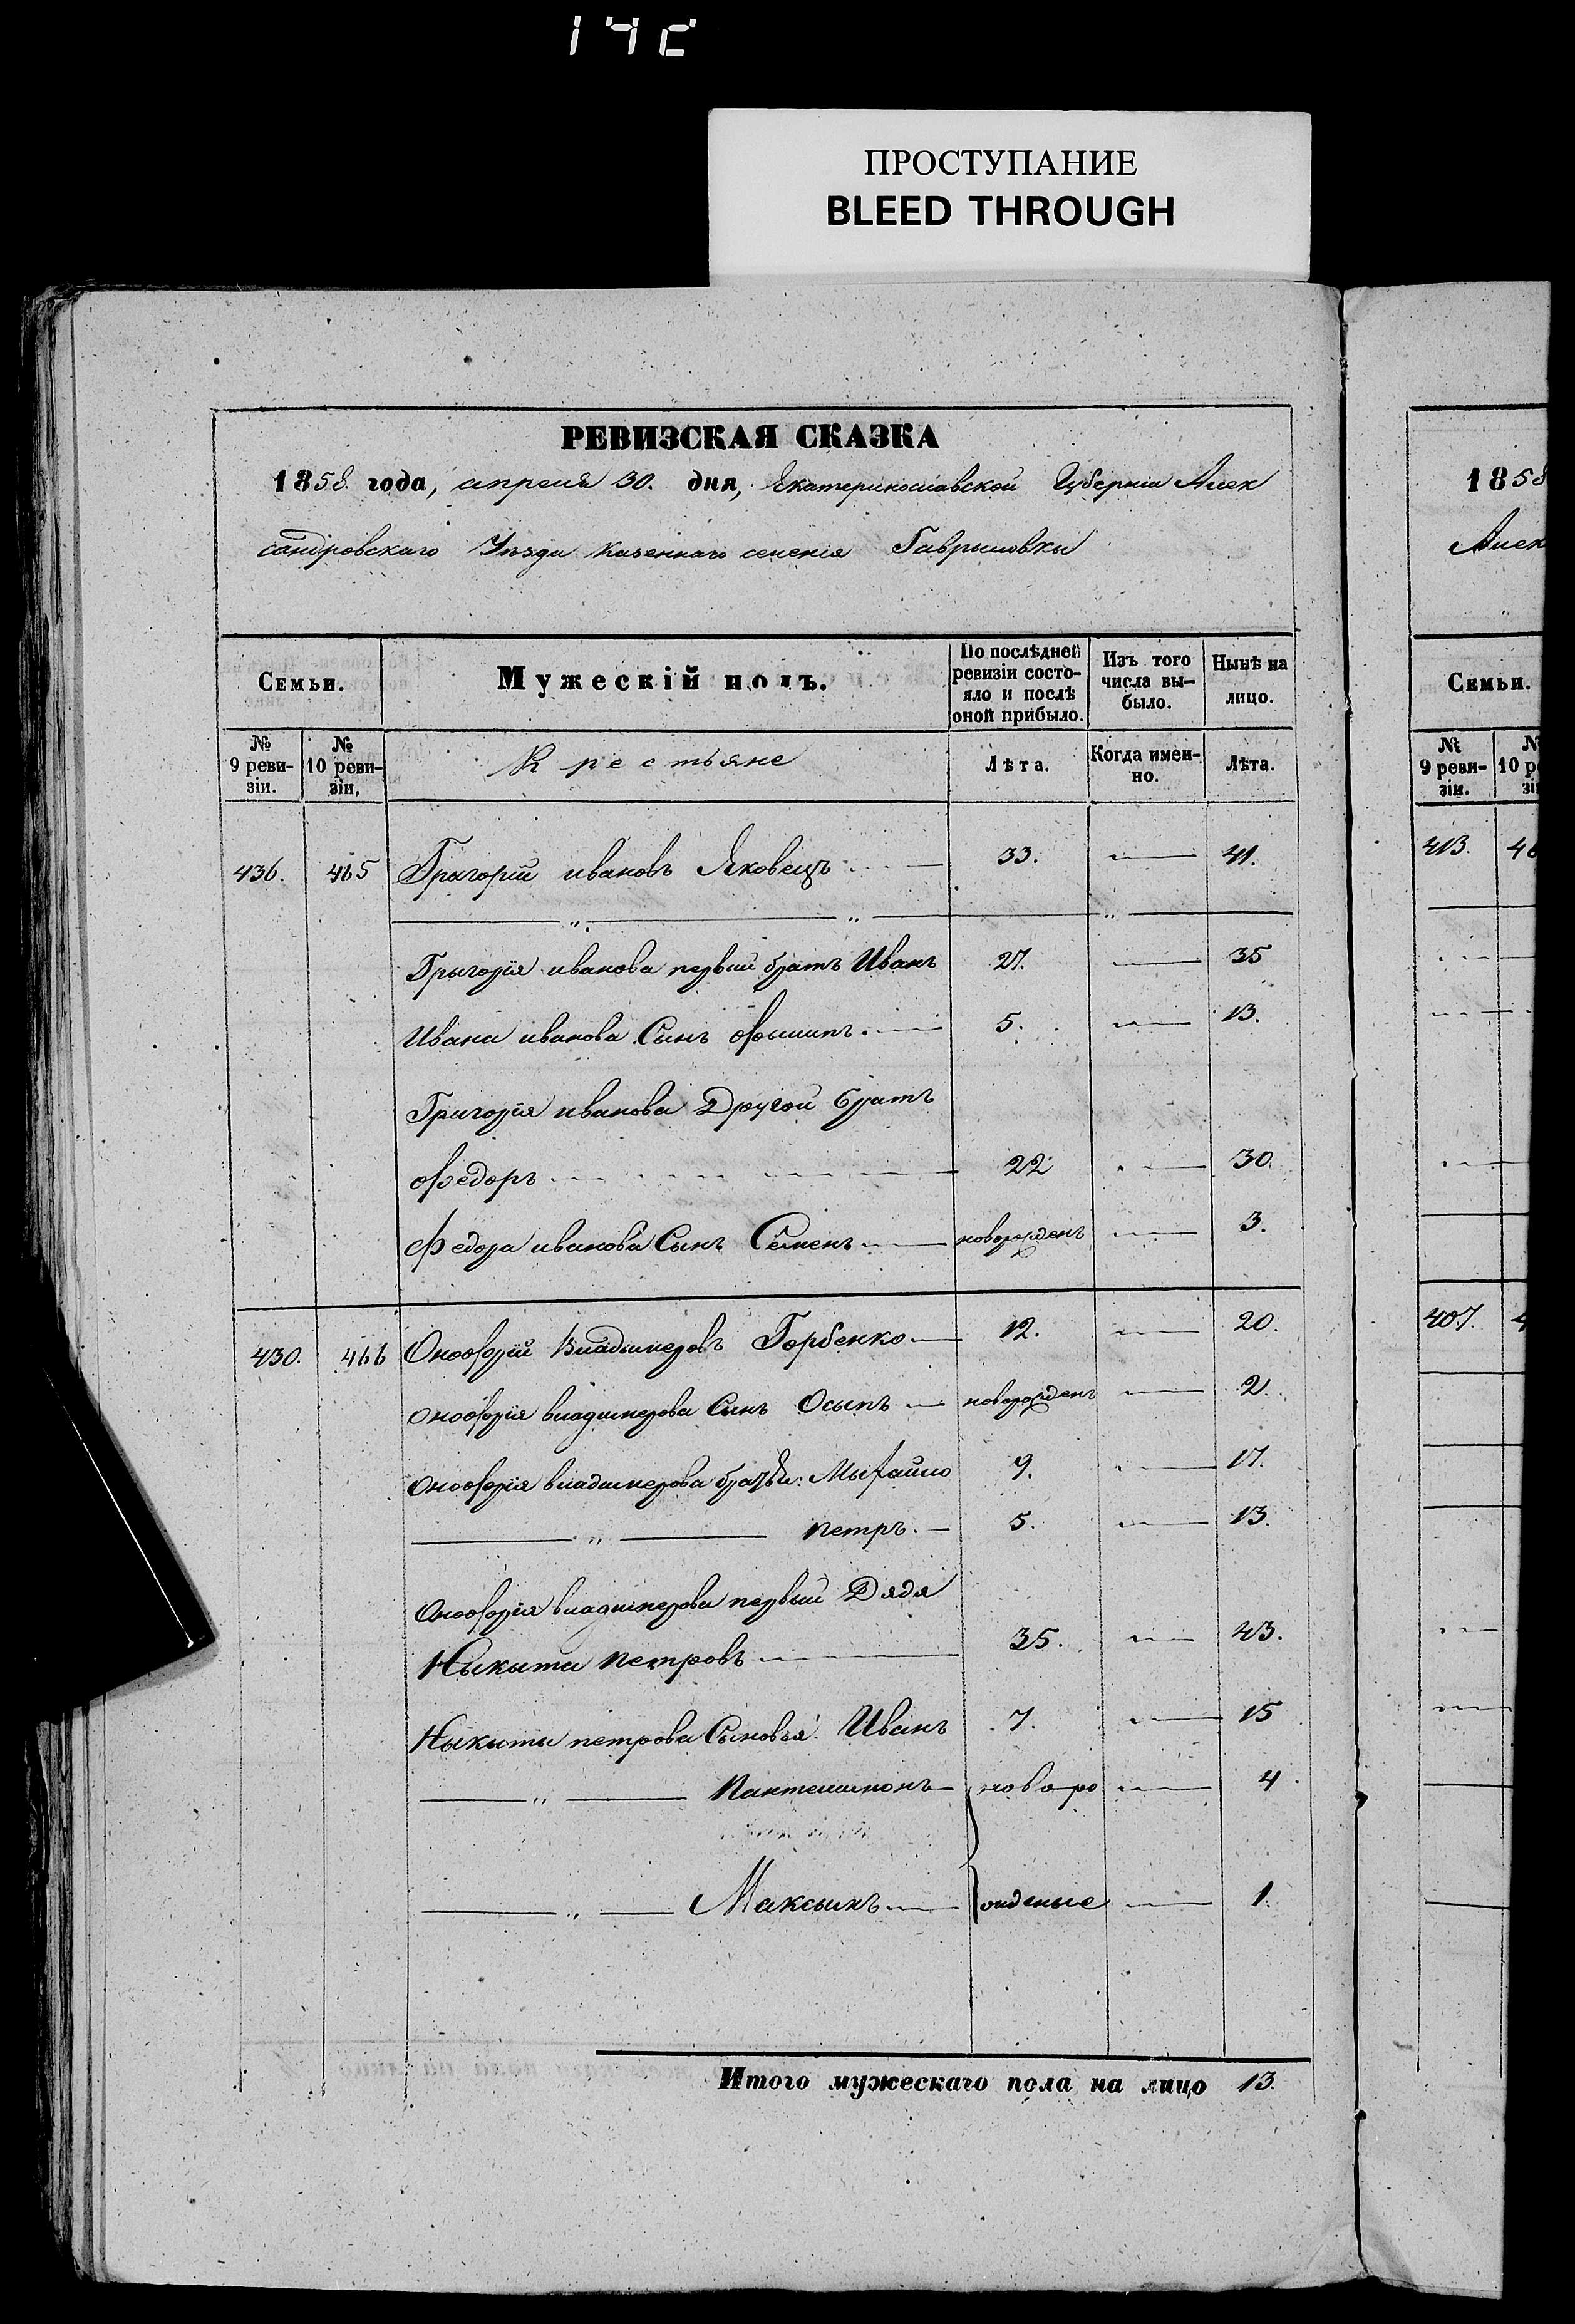 14c
ПРОСТУПАНИЕ
BLEED THROUGH
РЕВИЗСКАЯ СКАЗКА
1858. года, апреля 30. дня, Екатеринославской Губерніи Алек
сандровскаго Уѣзда казеннаго селенія Гаврыловки
Семьи.
Мужескій полъ.
По послѣдней ревизіи состо-яло и послѣ оной прибыло.
Изъ того числа вы-было.
Нынѣ на лицо.
№ 9 реви-зіи.
№ 10 реви-зіи.
Крестьяне
Лѣта.
Когда имен-но.
Лѣта.
436. 465 Григорій ивановъ Яковецъ 33. 41.
Грыгорія иванова первый братъ Иванъ 27. 35
Ивана иванова Сынъ Фылипъ. 5. 13.
Григорія иванова Другой братъ
Федоръ 22 30
Федора иванова Сынъ Семенъ новорожденъ 3.
430. 466 Оноофрій Владымеровъ Горбенко 12. 20.
Оноофрія владимерова Сынъ Осыпъ новорожденъ 2.
Оноофрія владимерова братья: Михайло 9. 17.
петръ. 5. 13.
Оноофрія владимерова первый Дядя
Ныкита петровъ 35. 43.
Ныкиты петрова Сыновья: Иванъ 7. 15
Пантелимонъ новоро 4
Максымъ жденые 1.
Итого мужескаго пола на лицо 13.
1858
Алек
Семьи.
№ 9 реви-зіи.
413. 46
407. 4